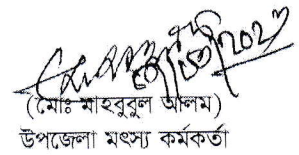 (মোঃ মাহবুবুল আলম)
উপজেলা মৎস্য কর্মকর্তা